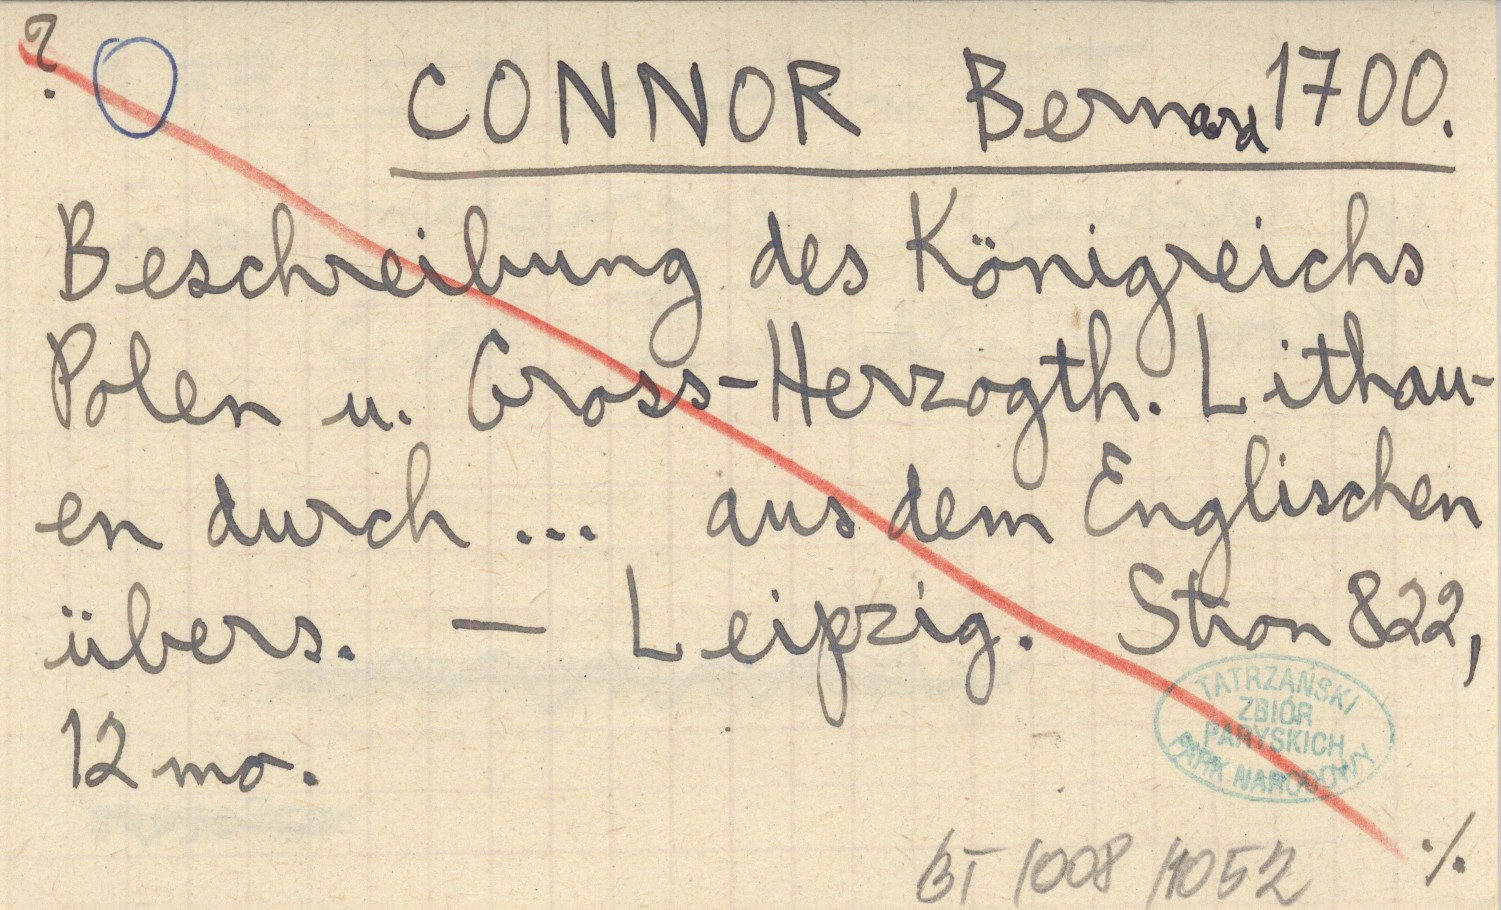 ?
CONNOR Bernard 1700.
Beschreibung des Königreichs
Polen u. Gross-Herzogth. Lithau-
en durch ... aus dem Englischen
übers. — Leipzig. Stron 822,
12 mo.
TATRZAŃSKI
ZBIÓR
PARYSKICH
PARK NARODOWY
BT 1008 /1052
./.